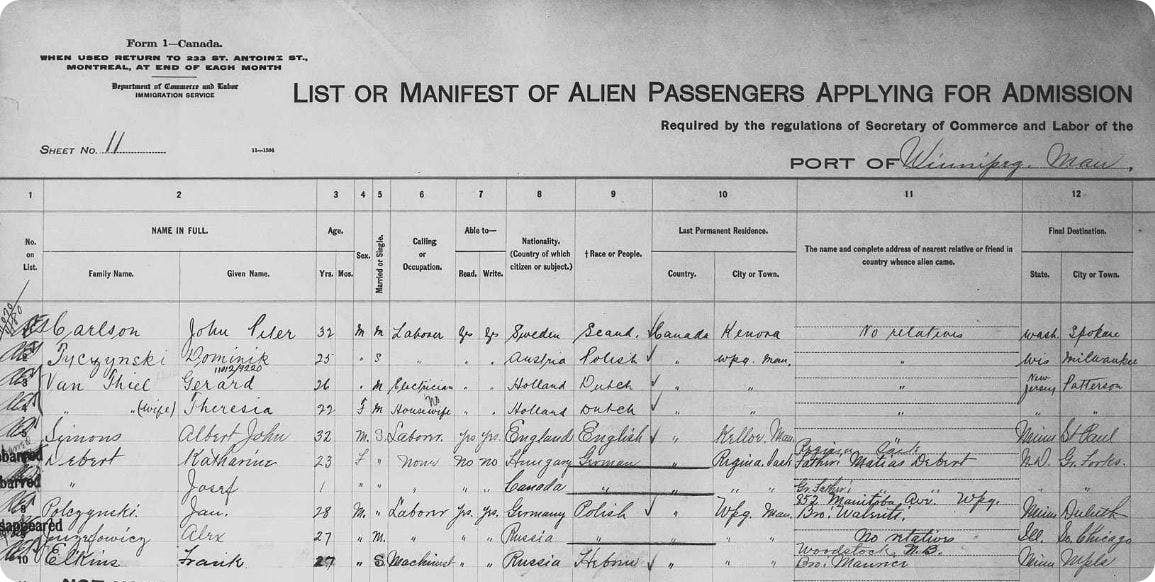 Form 1—Canada.
WHEN USED RETURN TO 233 ST. ANTOINE ST.,
MONTREAL, AT END OF EACH MONTH
Department of Commerce and Labor
IMMIGRATION SERVICE
LIST OR MANIFEST OF ALIEN PASSENGERS APPLYING FOR ADMISSION
Required by the regulations of Secretary of Commerce and Labor of the
SHEET NO. 11
PORT OF Winnipeg. Man.
1 2 3 4 5 6 7 8 9 10 11 12
No. on List.
NAME IN FULL.
Family Name. Given Name.
Age.
Yrs. Mos.
Sex.
Married or Single.
Calling or Occupation.
Able to—
Read. Write.
Nationality. (Country of which citizen or subject.)
†Race or People.
Last Permanent Residence.
Country. City or Town.
The name and complete address of nearest relative or friend in country whence alien came.
Final Destination.
State. City or Town.
Carlson John Peter 32 M M Laborer Yes Yes Sweden Scand. Canada Kenora No relatives Wash. Spokane
Tyczynski Dominik 25 " S " " " Austria Polish " Wpg. Man. " Wis Milwaukee
Van Thiel Gerard 26 " M Electrician " " Holland Dutch " " " New Jersey Patterson
" "(Wife) Theresia 22 F M Housewife " " Holland Dutch " " " " "
Simons Albert John 32 M. S. Laborer Yrs Yrs. England English " Man. Minn St Paul
Debert Katharine 23 F " None No No Hungary German " Regina, Sask Father: Matias Debert N.D. Gr. Forks.
" Josef 1 " " " " Canada " " " " Gr. Father: " "
Polczynski. Jan. 28 M. " Laborer Yrs. Yrs. Germany Polish " Wpg. Man. 852 Manitoba Ave. Wpg. Minn Duluth
Alex 27 " M. " " " Russia " " " " No relatives Ill. So. Chicago
10 Elkins Frank 27 " S Machinist " " Russia Hebrew " " " Woodstock, N.B. Minn Mpls